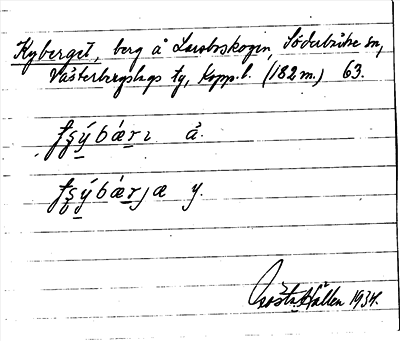 Kyberget, berg å Larsboskogen, Söderbärke sn,
Västerbergslags tg, Kopp. l. (182 m.) 63.
fʂýbærɩ å.
fʂýbærjæ y.
Gösta Hållen 1934.